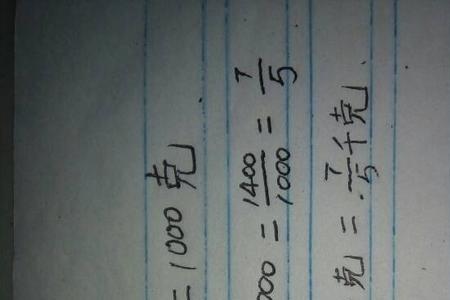 = 1000克
000 = 1400/1000 = 7/5
克 = 7/5千克.